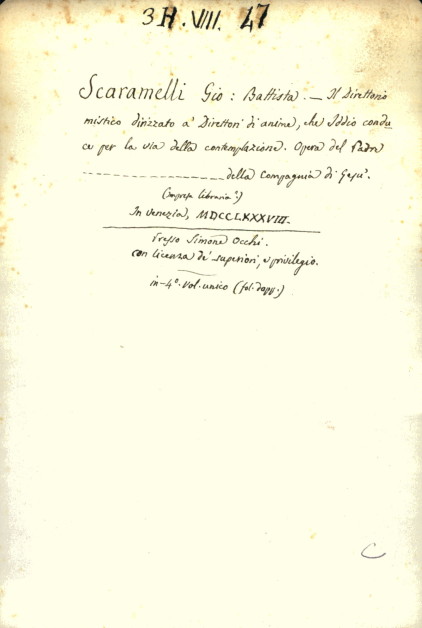 3H.VIII. 47
Scaramelli Gio: Battista. — Il Direttorio
mistico dirizzato a' Direttori di anime, che Iddio condu
ce per la via della contemplazione. Opera del Padre
-------------------- della Compagnia di Gesu'.
(impresa libraria)
In Venezia, MDCCLXXXVIII.
Presso Simone Occhi.
con licenza de' superiori, e privilegio.
in-4º. vol. unico (fol. dopp.)
C